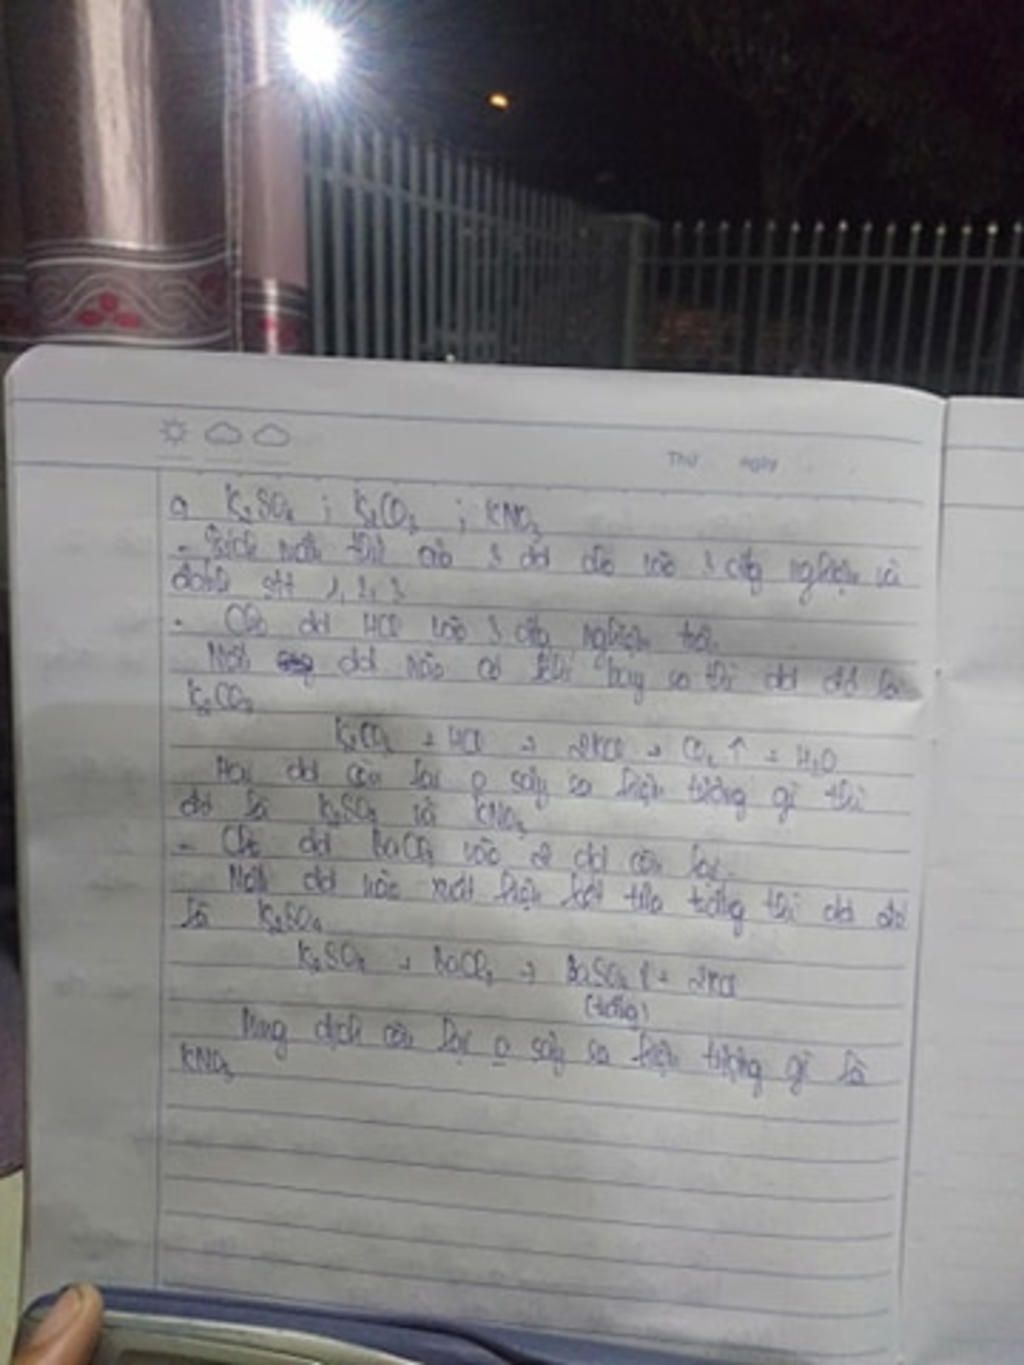 Thứ ngày
a, K₂SO₄ ; K₂CO₃ ; KNO₃
- Trích mẫu thử cho 3 dd cho vào 3 ống nghiệm và
đánh stt 1, 2, 3
- Cho dd HCl vào 3 ống nghiệm trên.
Nếu dd nào có khí bay ra thì dd đó là
K₂CO₃
K₂CO₃ + HCl → 2KCl + CO₂ ↑ + H₂O
Hai dd còn lại o sảy ra hiện tượng gì thì
đó là K₂SO₄ và KNO₃
- Cho dd BaCl₂ vào 2 dd còn lại.
Nếu dd nào xuất hiện kết tủa trắng thì dd đó
là K₂SO₄
K₂SO₄ + BaCl₂ → BaSO₄ ↓ + 2KCl
(trắng)
dịch còn lại o sảy ra hiện tượng gì là
KNO₃